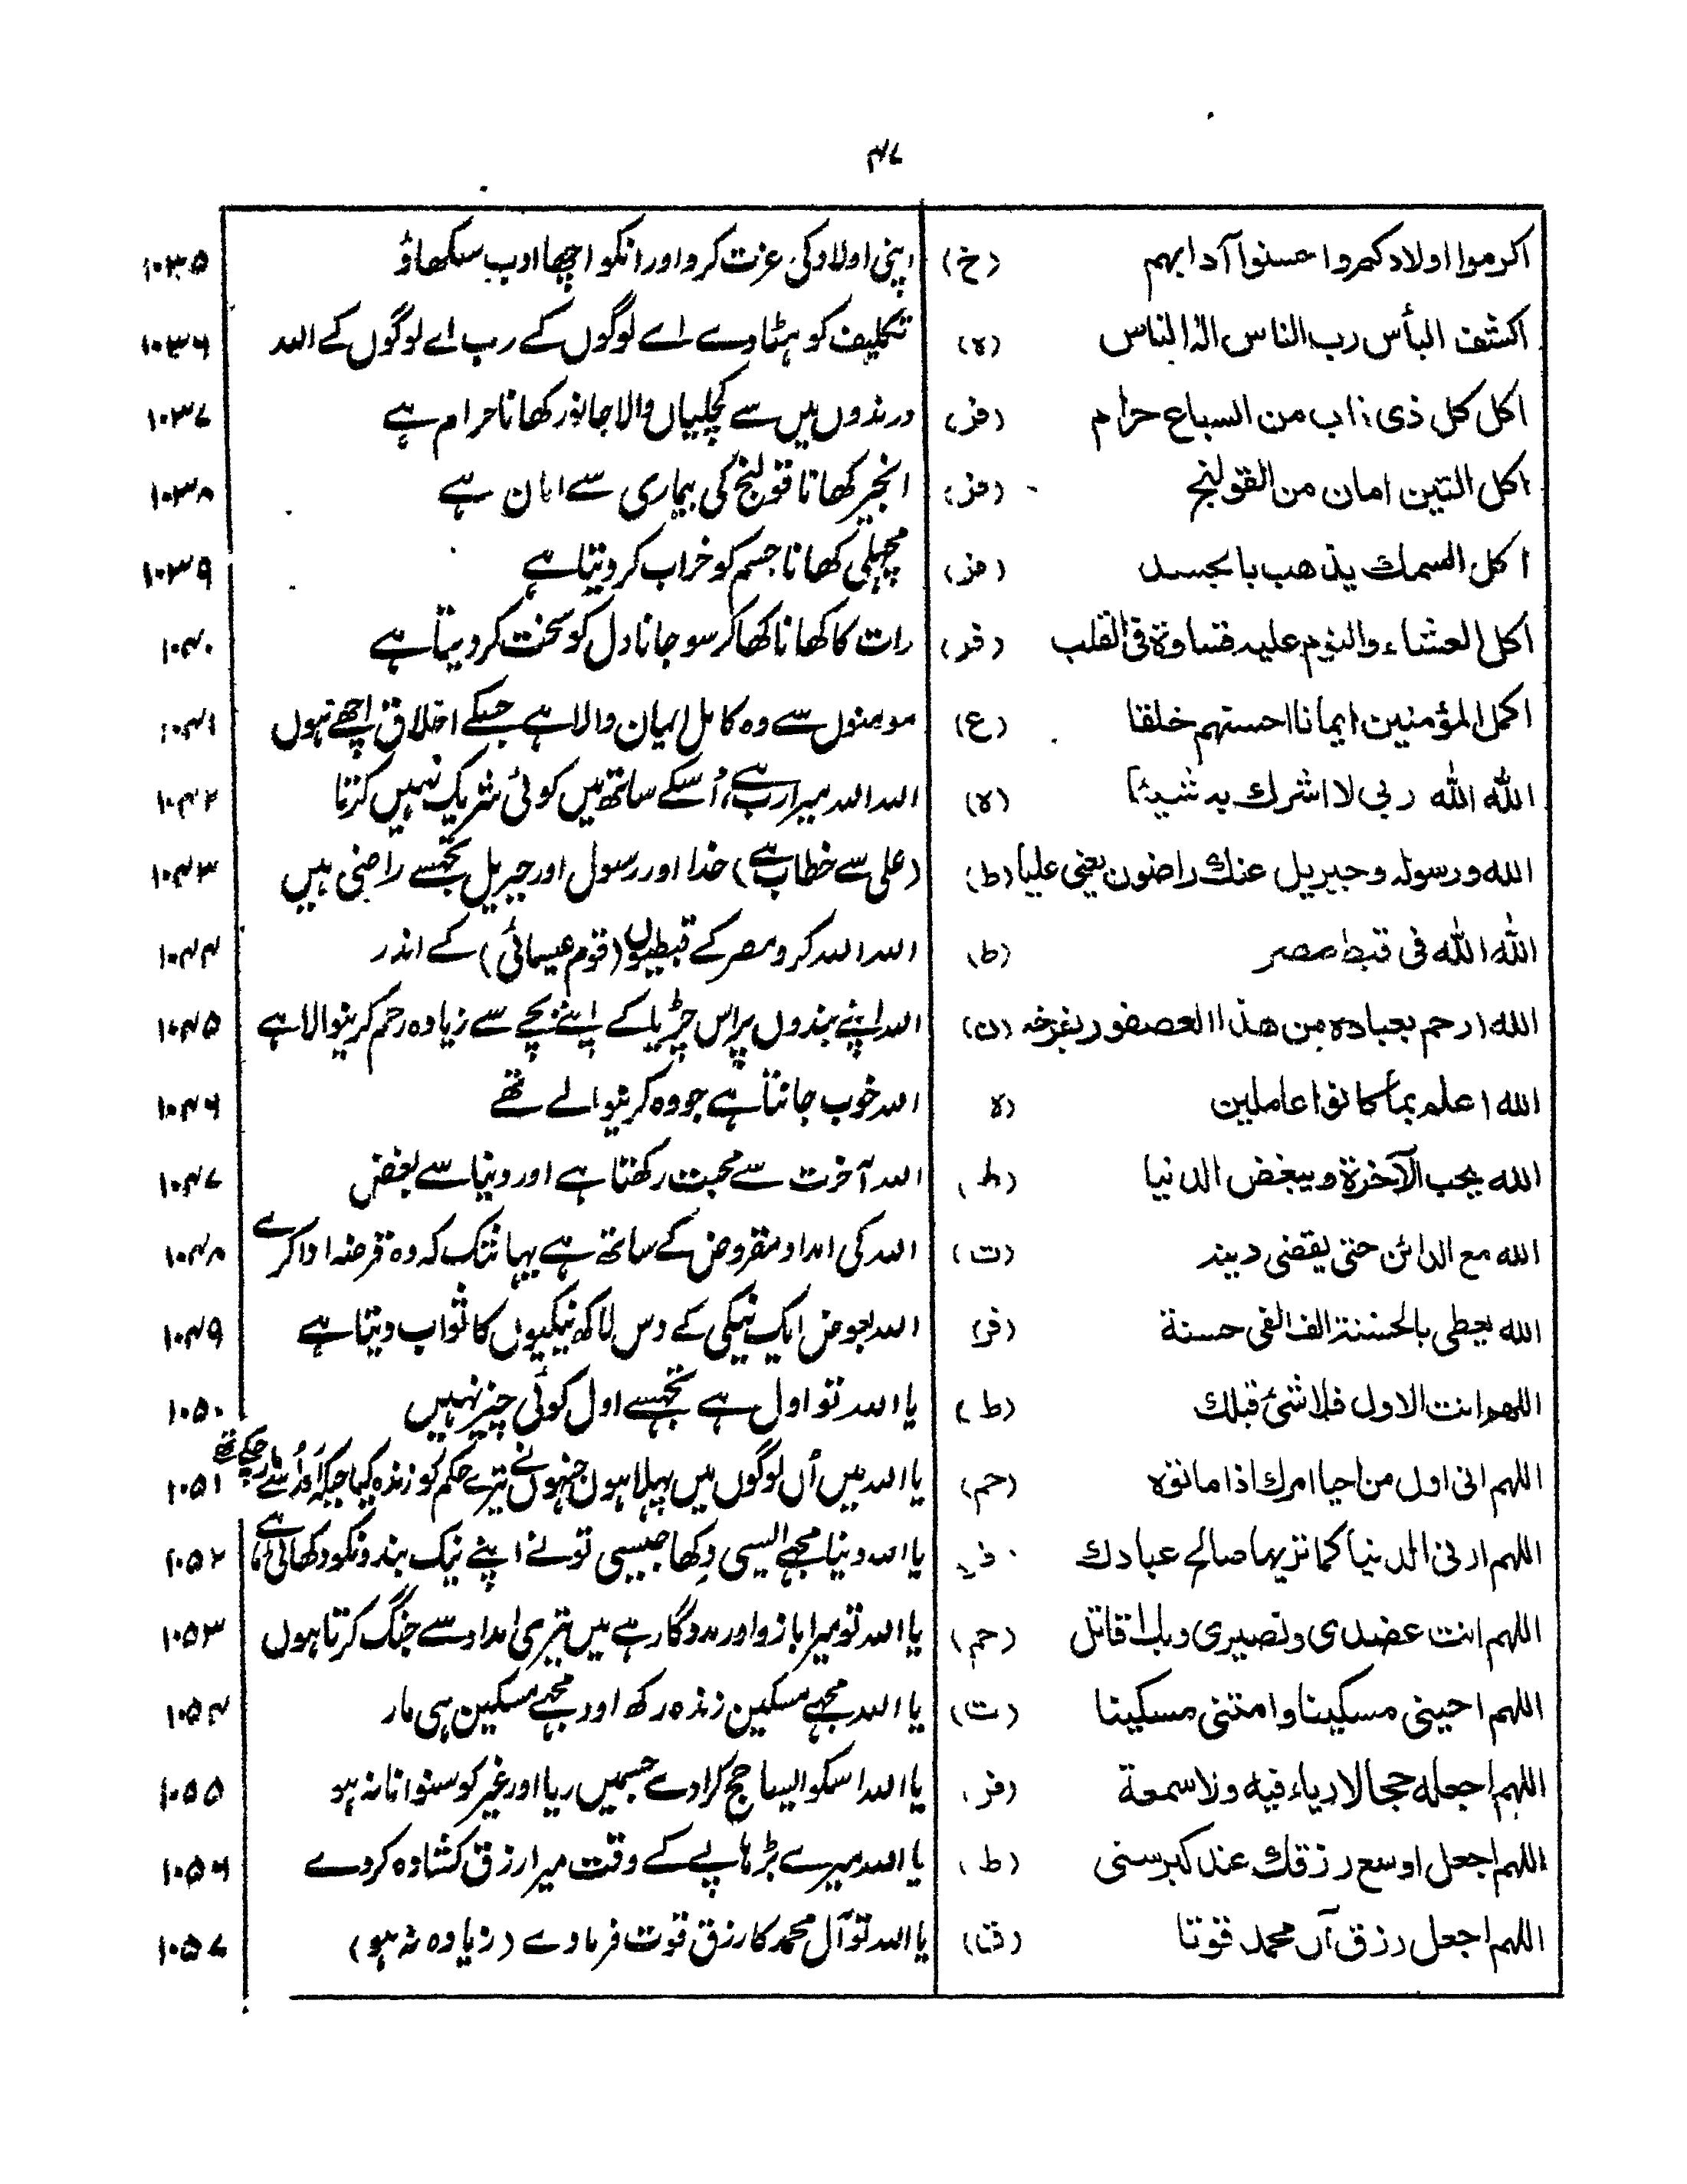 ۴۷
اکرموا اولادکم واحسنوا آدابہم (خ) اپنی اولاد کی عزت کرو اور انکو اچھا ادب سکھاؤ ۱۰۳۵
اکشف البأس رب الناس الٰہ الناس (ہ) تکلیف کو ہٹا دے اے لوگوں کے رب اے لوگوں کے اللہ ۱۰۳۶
اکل کل ذی ناب من السباع حرام (فر) درندوں میں سے کچلیاں والا جانور کھانا حرام ہے ۱۰۳۷
اکل التین امان من القولنج (فر) انجیر کھانا قولنج کی بیماری سے امان ہے ۱۰۳۸
اکل السمك یذھب بالجسد (فر) مچھلی کھانا جسم کو خراب کر دیتا ہے ۱۰۳۹
اکل العشاء والنوم علیہ قساوۃ فی القلب (فر) رات کا کھانا کھا کر سو جانا دل کو سخت کر دیتا ہے ۱۰۴۰
اکمل المؤمنین ایمانا احسنہم خلقا (ع) مومنوں سے وہ کامل ایمان والا ہے جسکے اخلاق اچھے ہوں ۱۰۴۱
اللّٰہ اللّٰہ ربی لا اشرك بہ شیئا (ہ) اللہ اللہ میرا رب ہے، اُسکے ساتھ میں کوئی شریک نہیں کرتا ۱۰۴۲
اللہ ورسولہ وجبریل عنك راضون یعنی علیا (ط) (علی سے خطاب ہے) خدا اور رسول اور جبریل تجھسے راضی ہیں ۱۰۴۳
اللّٰہ اللّٰہ فی قبط مصر (ط) اللہ اللہ کرو مصر کے قبطیوں (قوم عیسائی) کے اندر ۱۰۴۴
اللہ ارحم بعبادہ من ھذا العصفور بفرخہ (ن) اللہ اپنے بندوں پر اس چڑیا کے اپنے بچے سے زیادہ رحم کرنیوالا ہے ۱۰۴۵
اللہ اعلم بما کانوا عاملین (ہ اللہ خوب جانتا ہے جو وہ کرنیوالے تھے ۱۰۴۶
اللہ یحب الآخرۃ ویبغض الدنیا (ط) اللہ آخرت سے محبت رکھتا ہے اور دنیا سے بغض ۱۰۴۷
اللہ مع الدائن حتی یقضی دینہ (ت) اللہ کی امداد مقروض کے ساتھ ہے یہانتک کہ وہ قرضہ ادا کرے ۱۰۴۸
اللہ یعطی بالحسنۃ الف الفی حسنة (فر) اللہ بعوض ایک نیکی کے دس لاکھ نیکیوں کا ثواب دیتا ہے ۱۰۴۹
اللہم انت الاول فلا شئ قبلك (ط) یا اللہ تو اول ہے تجھسے اول کوئی چیز نہیں ۱۰۵۰
اللہم انی اول من احیا امرك اذا ماتوہ (حم) یا اللہ میں اُن لوگوں میں پہلا ہوں جنہوں نے تیرے حکم کو زندہ کیا جبکہ اور اُسے مار چکے تھے ۱۰۵۱
اللہم ارنی الدنیا کما تریہا صالح عبادك یا اللہ دنیا مجھے ایسی دکھا جیسی تونے اپنے نیک بندونکو دکھائی ہے ۱۰۵۲
اللہم انت عضدی ونصیری وبك اقاتل (حم) یا اللہ تو میرا بازو اور مددگار ہے میں تیری امداد سے جنگ کرتا ہوں ۱۰۵۳
اللہم احینی مسکینا وامتنی مسکینا (ت) یا اللہ مجھے مسکین زندہ رکھ اور مجھے مسکین ہی مار ۱۰۵۴
اللہم اجعلہ حجا لا ریاء فیہ ولا سمعة (فر) یا اللہ اسکو ایسا حج کرا دے جسمیں ریا اور غیر کو سنوانا نہ ہو ۱۰۵۵
اللہم اجعل اوسع رزقك عند کبر سنی (ط) یا اللہ میرے بڑھاپے کے وقت میرا رزق کشادہ کر دے ۱۰۵۶
اللہم اجعل رزق آل محمد قوتا (ق) یا اللہ تو آل محمد کا رزق قوت فرما دے (زیادہ نہ ہو) ۱۰۵۷